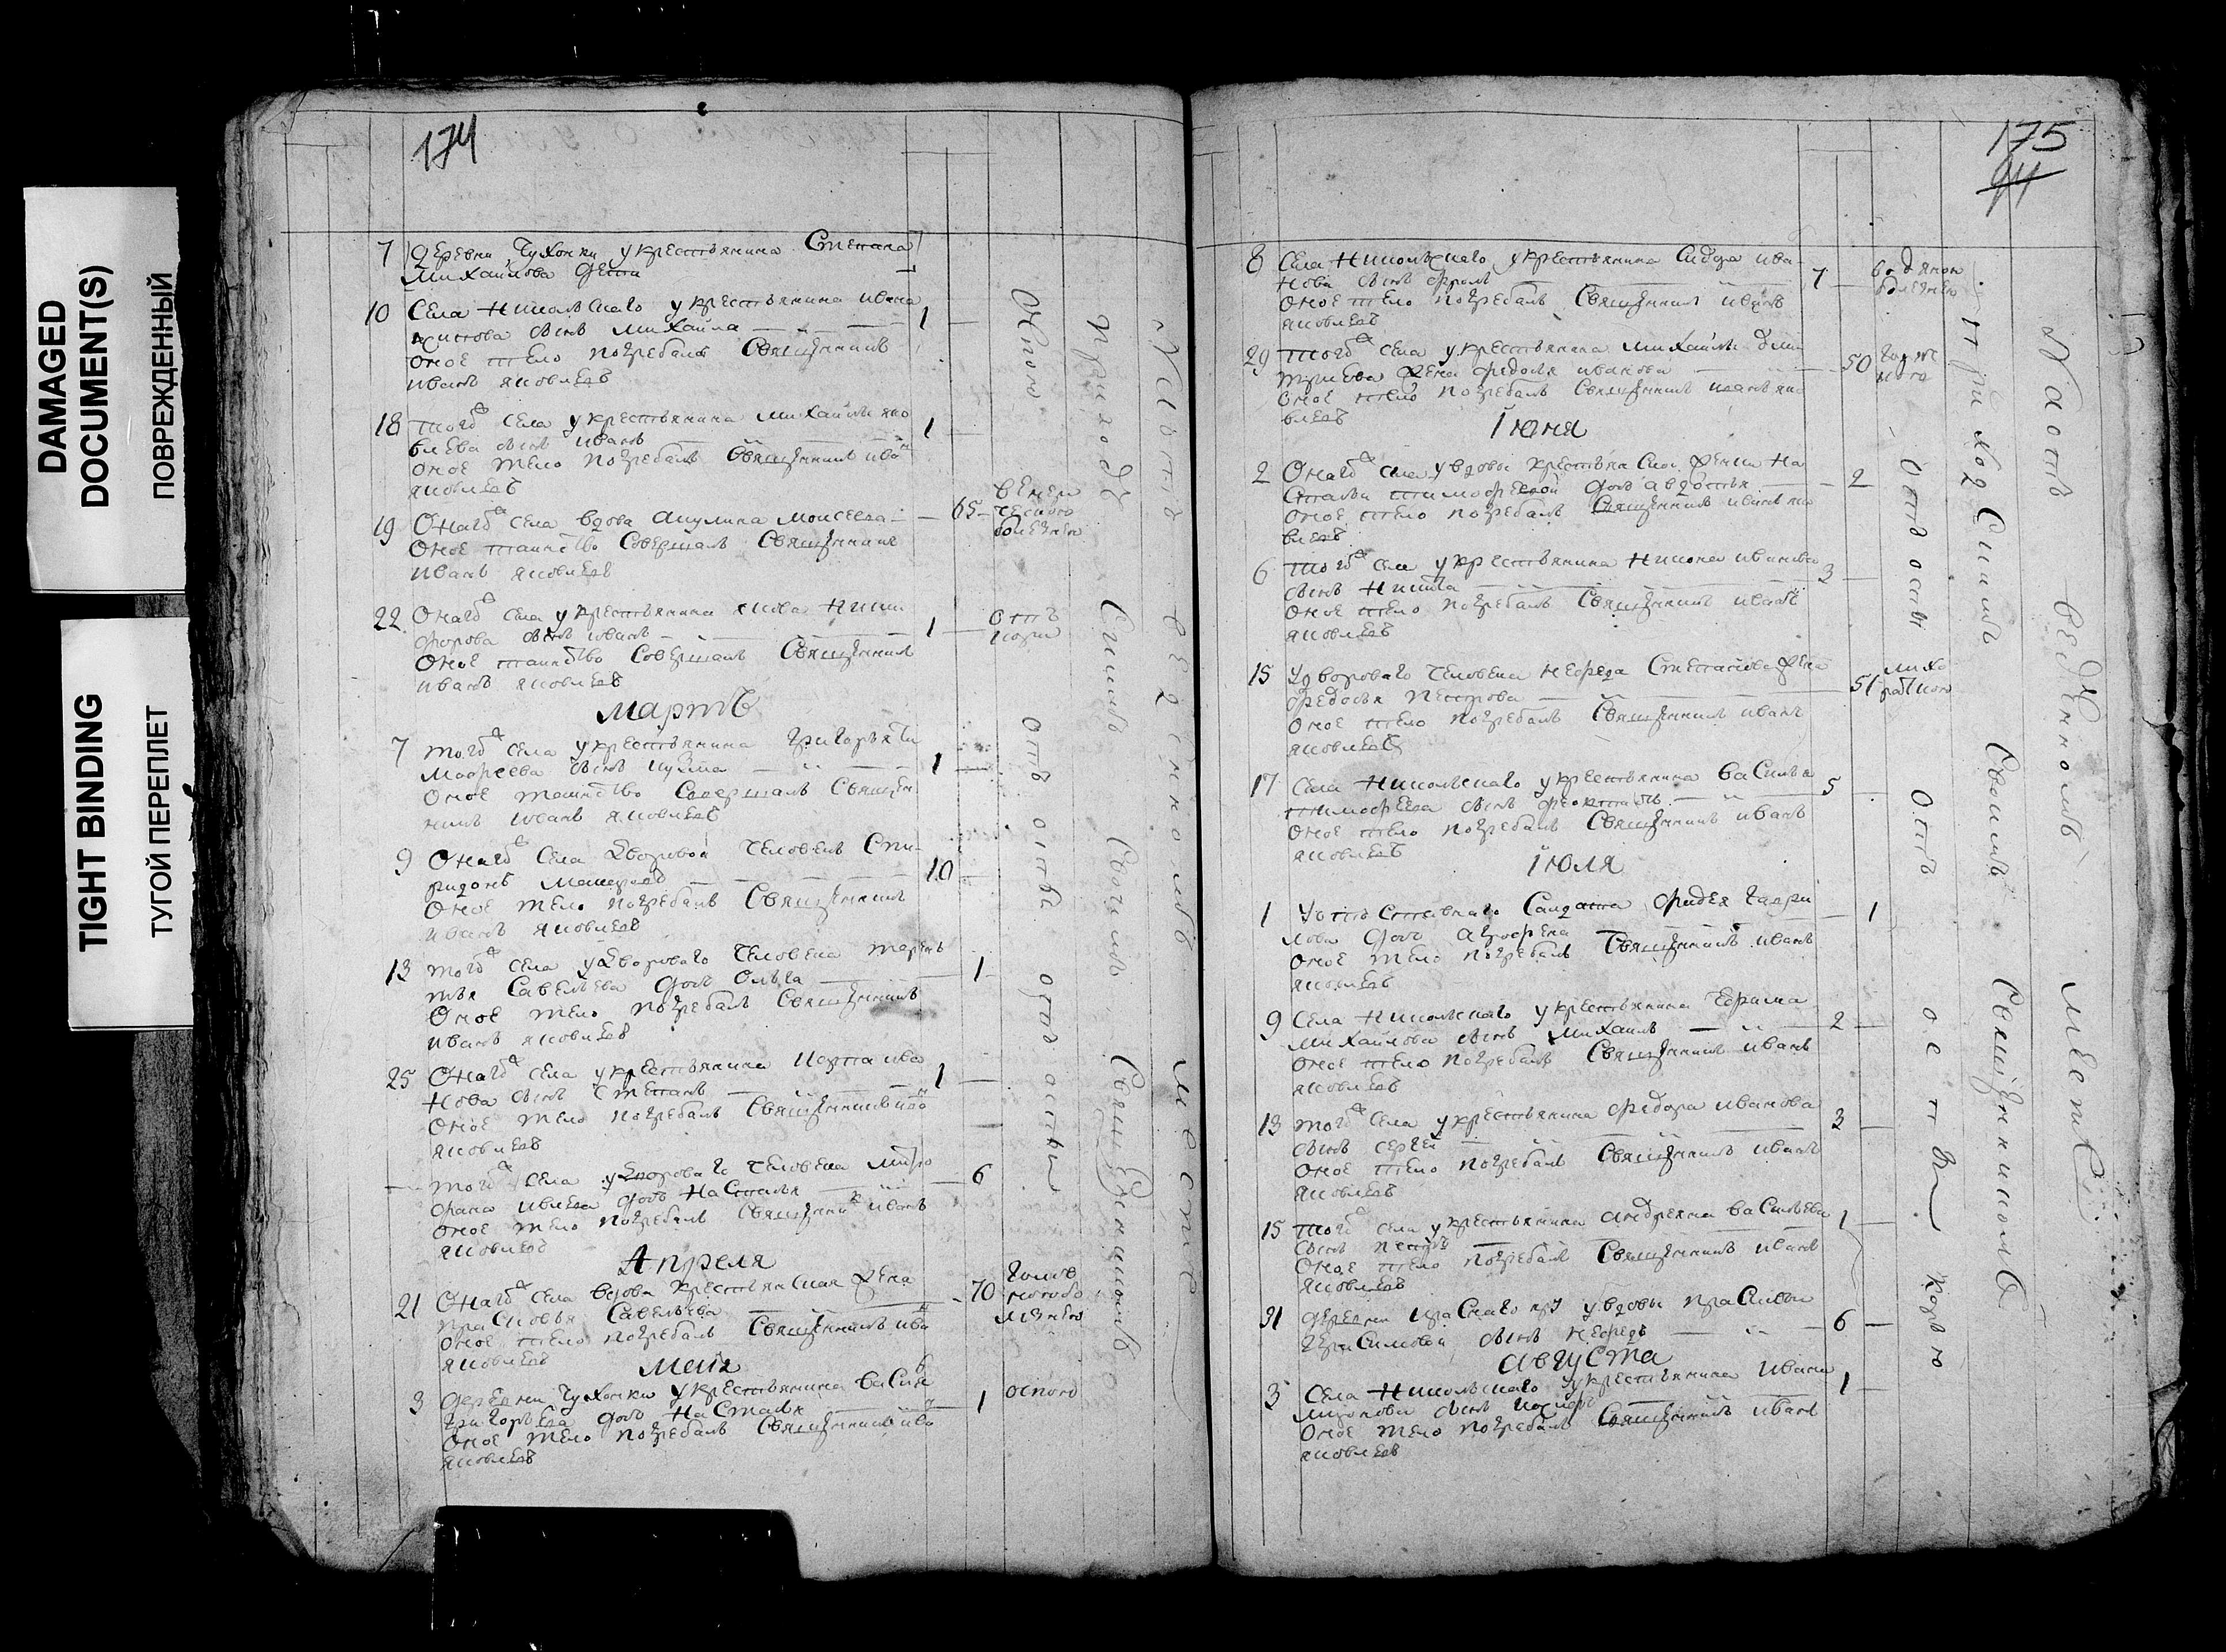 DAMAGED
DOCUMENT(S)
ПОВРЕЖДЕННЫЙ
TIGHT BINDING
ТУГОЙ ПЕРЕПЛЕТ
174
7 деревни Чухонки у крестьянина Степана
Михайлова дети
10 Села Никольскаго у крестьянина Ивана
сынъ Михайла 1
оное тело погребалъ Священникъ
Иванъ Яковлевъ
18 тогоже села у крестьянина Михайлы Яко
влева сынъ Иванъ 1
оное тело погребалъ Священникъ Иванъ
Яковлевъ
19 Онагоже села вдова Акулина Моисеева 65
оное таинство Совершалъ Священникъ
Иванъ Яковлевъ
22 Онагоже села у крестьянина Якова Ники
форова сынъ Иванъ 1
оное таинство Совершалъ Священникъ
Иванъ Яковлевъ
мартъ
7 тогоже села у крестьянина Григорья Ти
мофеева сынъ Кузма 1
оное таинство Совершалъ Священ
никъ Иванъ Яковлевъ
9 Онагоже села дворовой человекъ Спи
ридонъ 10
оное тело погребалъ Священникъ
Иванъ Яковлевъ
13 тогоже села у двороваго человека Терень
тья Савельева дочь Ольга 1
оное тело погребалъ Священникъ
Иванъ Яковлевъ
25 Онагоже села у крестьянина Карпа Ива
нова сынъ Степанъ 1
оное тело погребалъ Священникъ Иванъ
Яковлевъ
тогоже села у двороваго человека Митро
фана дочь Настасья 6
оное тело погребалъ Священникъ Иванъ
Яковлевъ
Апреля
21 Онагоже села вдова крестьянская жена
Прасковья Савельева 70
оное тело погребалъ Священникъ Иванъ
Яковлевъ
маия
3 деревни Чухонки у крестьянина Василья
Григорьева дочь Настасья 1 оспою
оное тело погребалъ Священникъ Иванъ
Яковлевъ
оспою
отъ
отъ оспы
отъ оспы
на отведенномъ месте
приходе Симъ Своимъ Священникомъ
175
94
8 Села Никольскаго у крестьянина Сидора Ива
нова сынъ Фролъ 7 водяною болезнею
оное тело погребалъ Священникъ Иванъ
Яковлевъ
29 тогоже села у крестьянина Михайлы Дми
триева жена Федосья Иванова 50
оное тело погребалъ Священникъ Иванъ Яко
влевъ
Iюня
2 Онагоже села у вдовы крестьянской жены На
стасьи Тимофеевой дочь Авдотья 2
оное тело погребалъ Священникъ Иванъ Яко
влевъ
6 тогоже села у крестьянина Никона Иванова 3
сынъ Никита
оное тело погребалъ Священникъ Иванъ
Яковлевъ
15 у двороваго человека Нефеда Степанова жена
Федосья Петрова 51
оное тело погребалъ Священникъ Иванъ
Яковлевъ
17 Села Никольскаго у крестьянина Василья 5
Тимофеева сынъ Феоктистъ
оное тело погребалъ Священникъ Иванъ
Яковлевъ
Iюля
1 у отставнаго Салдата Фадея Гаври
лова дочь Агрофена 1
оное тело погребалъ Священникъ Иванъ
Яковлевъ
9 Села Никольскаго у крестьянина Ефима 2
Михайлова сынъ Михаилъ
оное тело погребалъ Священникъ Иванъ
Яковлевъ
13 тогоже села у крестьянина Федора Иванова 3
сынъ Сергей
оное тело погребалъ Священникъ Иванъ
Яковлевъ
15 тогоже села у крестьянина Андреяна Васильева 1
сынъ Петръ
оное тело погребалъ Священникъ Иванъ
Яковлевъ
31 деревни у вдовы Прасковьи
Герасимовой сынъ Нефедъ 6
августа
3 Села Никольскаго у крестьянина Ивана 1
сынъ
оное тело погребалъ Священникъ Иванъ
Яковлевъ
отъ оспы
отъ
корью
при ходе Симъ Своимъ Священникомъ
На отведенномъ месте